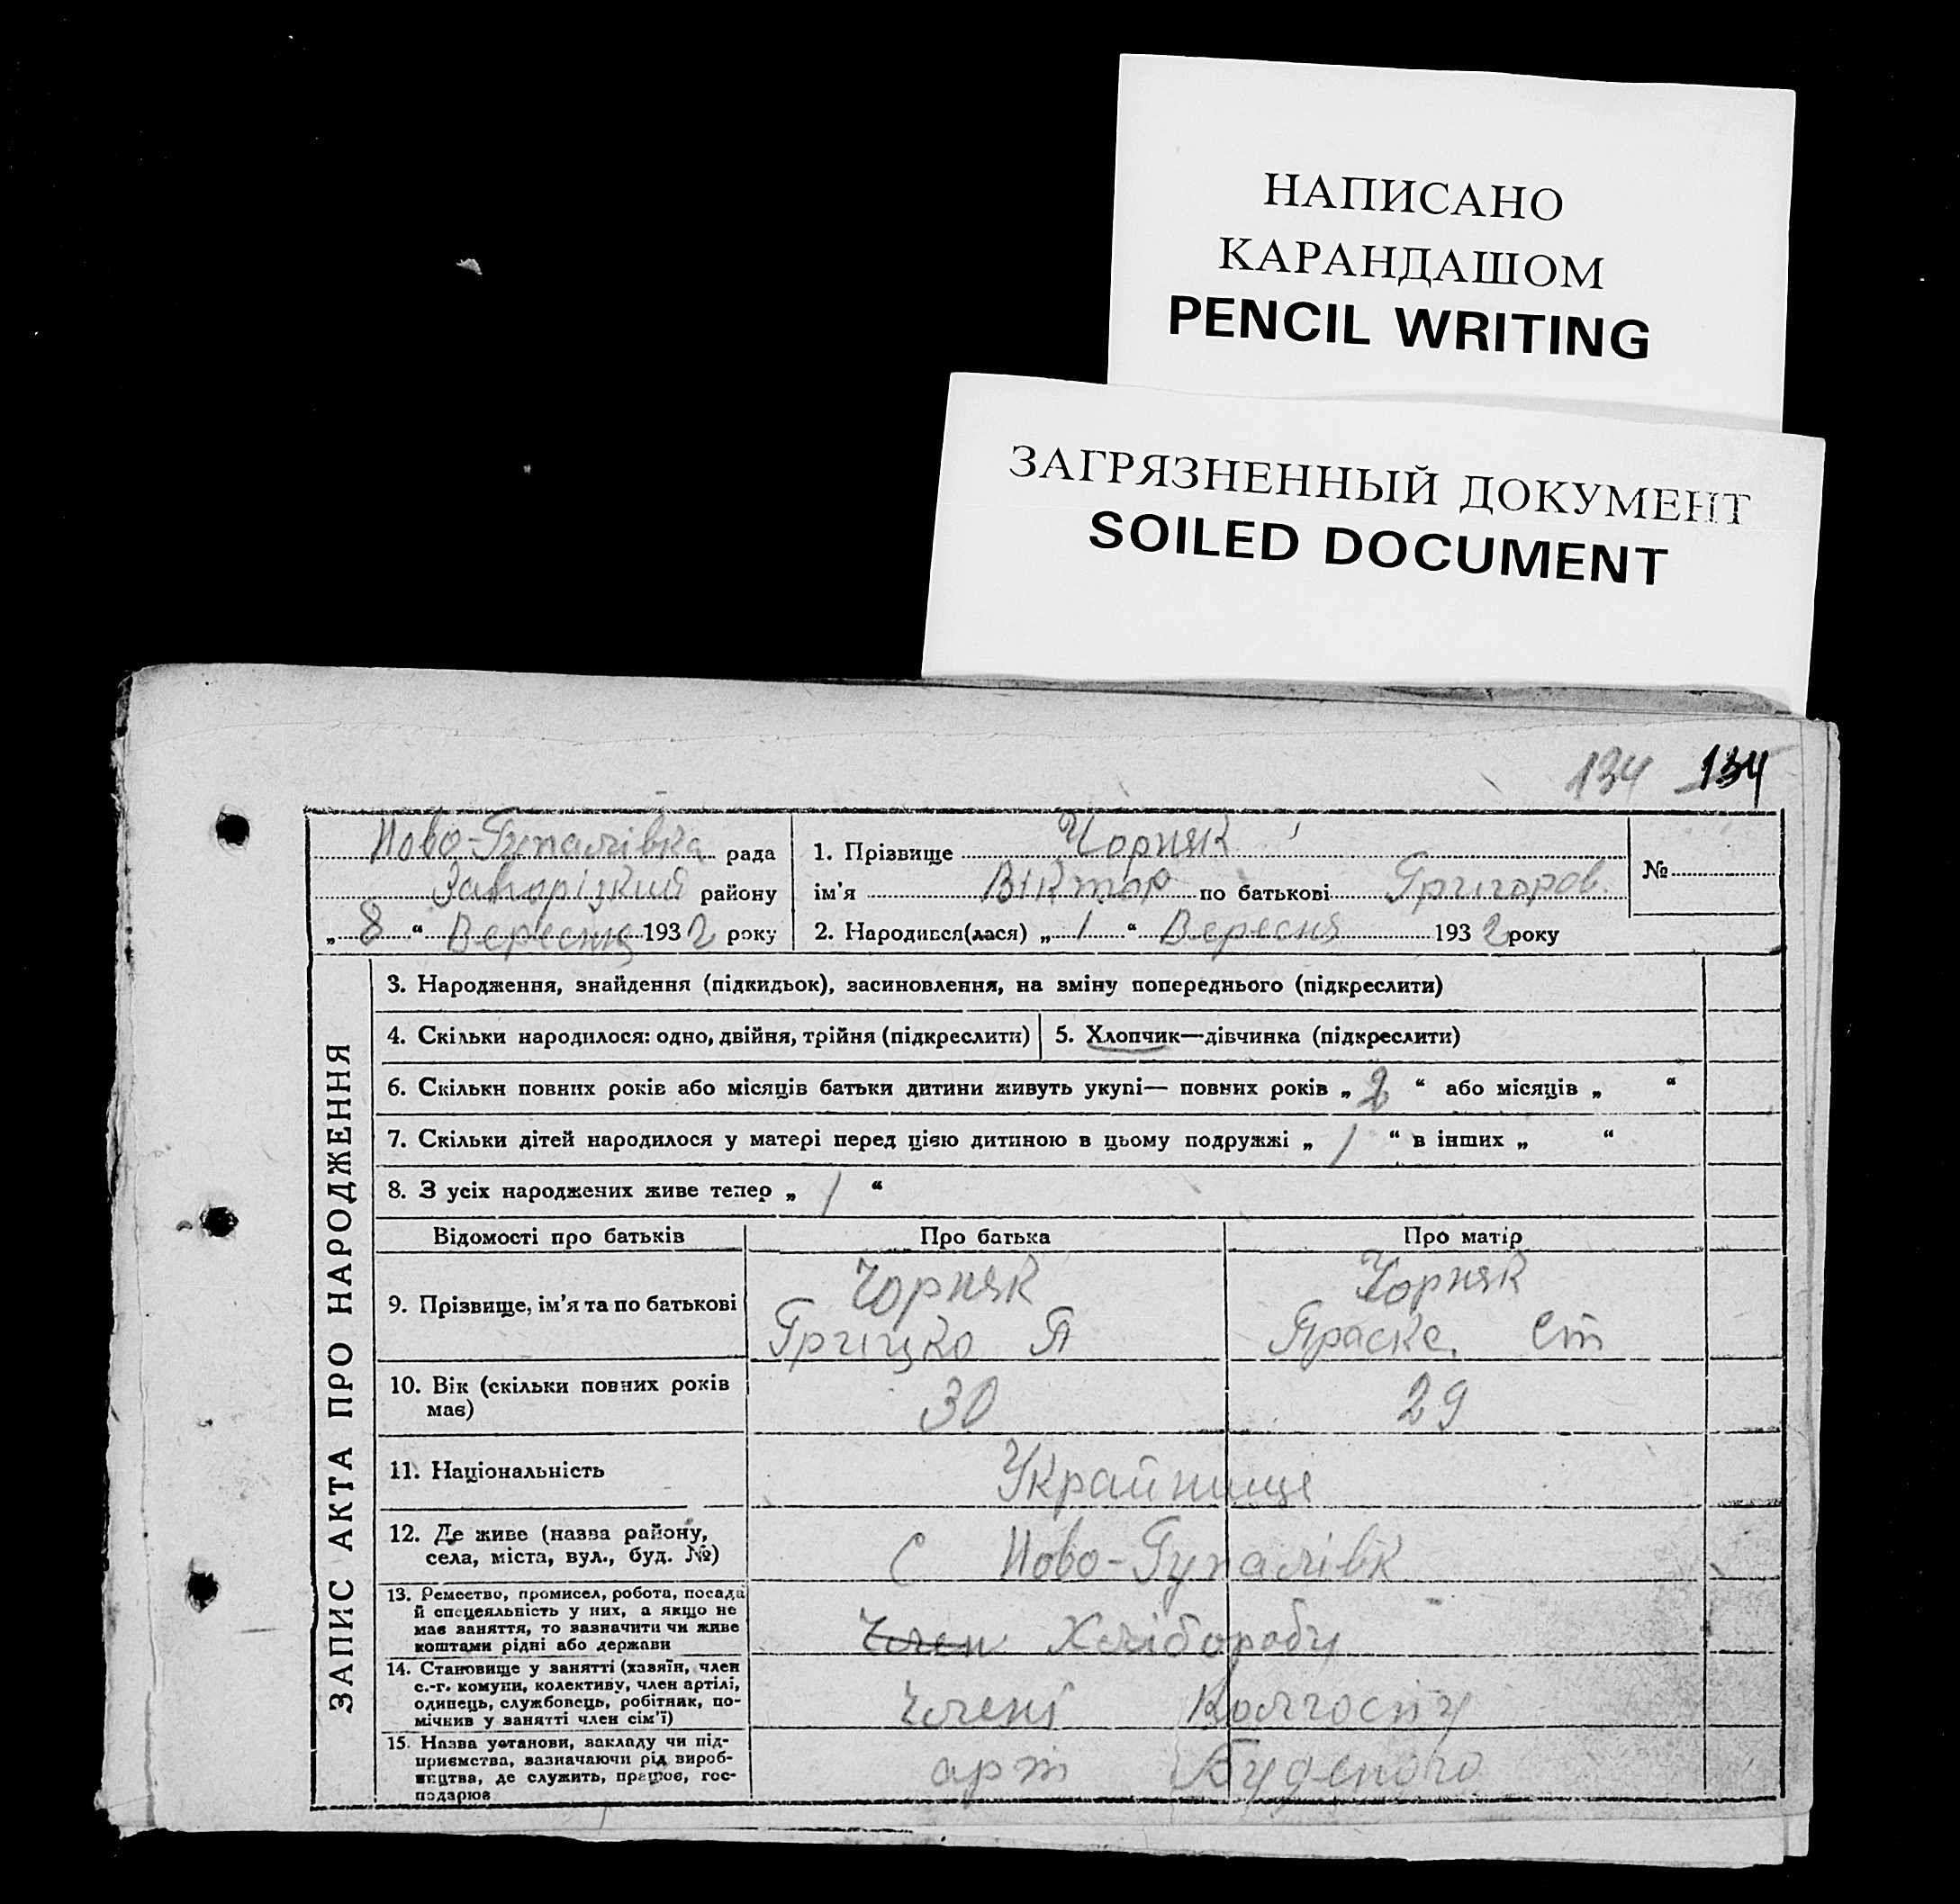 НАПИСАНО
КАРАНДАШОМ
PENCIL WRITING
ЗАГРЯЗНЕННЫЙ ДОКУМЕНТ
SOILED DOCUMENT
134 134
Ново-Гупалівка рада
Запорізкий району
„ 8 “ Вересня 1932 року
1. Прізвище Чорняк
ім'я Віктор по батькові Григоров.
2. Народився(лася) „ 1 “ Вересня 1932 року
№
ЗАПИС АКТА ПРО НАРОДЖЕННЯ
3. Народження, знайдення (підкидьок), засиновлення, на зміну попереднього (підкреслити)
4. Скільки народилося: одно, двійня, трійня (підкреслити) 5. Хлопчик—дівчинка (підкреслити)
6. Скільки повних років або місяців батьки дитини живуть укупі— повних років „ 2 “ або місяців „ “
7. Скільки дітей народилося у матері перед цією дитиною в цьому подружжі „ 1 “ в інших „ “
8. З усіх народжених живе тепер „ 1 “
Відомості про батьків Про батька Про матір
9. Прізвище, ім'я та по батькові
Чорняк Чорняк
Грицко Я Параска Ст
10. Вік (скільки повних років
має)
30 29
11. Національність Українці
12. Де живе (назва району,
села, міста, вул., буд. №)
С Ново-Гупалівк
13. Ремество, промисел, робота, посада
й спецеяльність у них, а якщо не
має заняття, то зазначити чи живе
коштами рідні або держави
Член Хлібороби
14. Становище у занятті (хазяїн, член
с.-г. комуни, колективу, член артілі,
одинець, службовець, робітник, по-
мічник у занятті член сім'ї)
Члені Колгоспу
15. Назва установи, закладу чи під-
приємства, зазначаючи рід вироб-
ництва, де служить, працює, гос-
подарює
арт Буденого